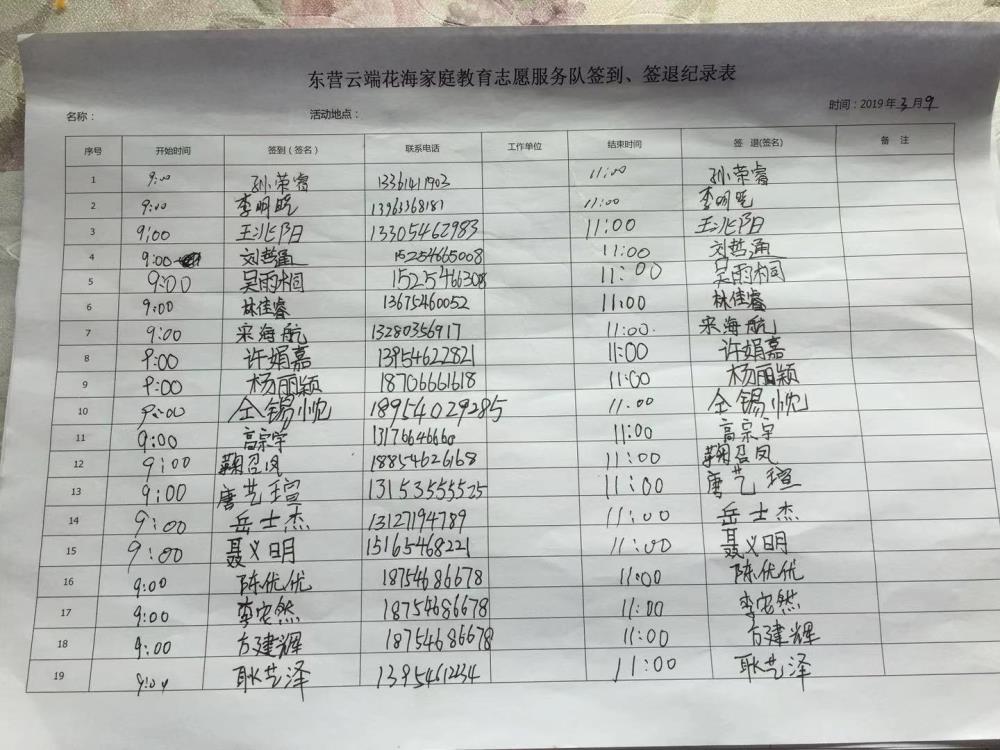 东营云端花海家庭教育志愿服务队签到、签退纪录表
名称： 活动地点： 时间：2019年3月9
序号 开始时间 签到（签名） 联系电话 工作单位 结束时间 签 退(签名) 备 注
1 9:00 孙荣睿 13361411903 11:00 孙荣睿
2 9:00 李明晓 13963368181 11:00 李明晓
3 9:00 王兆阳 13305462983 11:00 王兆阳
4 9:00 刘哲涵 15254665008 11:00 刘哲涵
5 9:00 吴雨桐 1525466308 11:00 吴雨桐
6 9:00 林佳睿 13675460052 11:00 林佳睿
7 9:00 宋海航 13280356917 11:00 宋海航
8 9:00 许娟嘉 13954622821 11:00 许娟嘉
9 9:00 杨丽颖 18706661618 11:00 杨丽颖
10 9:00 仝锡忱 18954029285 11:00 仝锡忱
11 9:00 高宗宇 1317664666 11:00 高宗宇
12 9:00 鞠召凤 18854626168 11:00 鞠召凤
13 9:00 唐艺瑄 13153555525 11:00 唐艺瑄
14 9:00 岳士杰 13127194789 11:00 岳士杰
15 9:00 聂义明 15165468221 11:00 聂义明
16 9:00 陈优优 18754686678 11:00 陈优优
17 9:00 李安然 18754686678 11:00 李安然
18 9:00 方建辉 18754686678 11:00 方建辉
19 9:04 耿艺泽 13954612434 11:00 耿艺泽